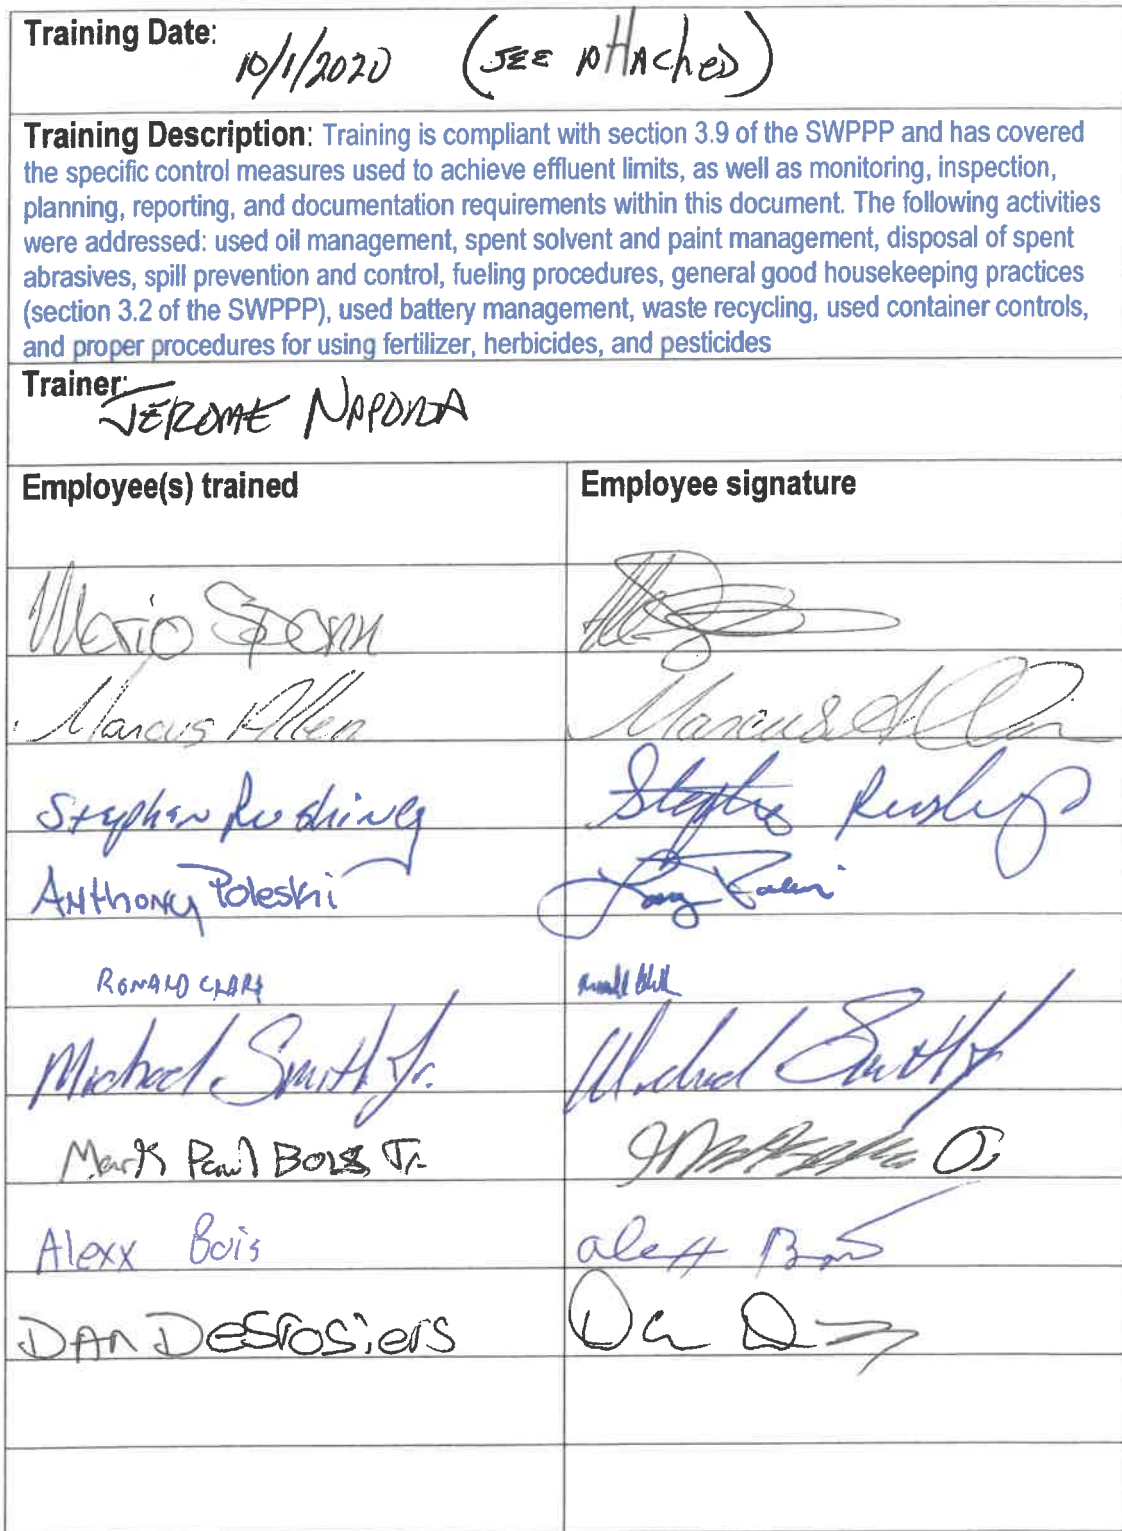 Training Date: 10/1/2020 (SEE AttAched)
Training Description: Training is compliant with section 3.9 of the SWPPP and has covered
the specific control measures used to achieve effluent limits, as well as monitoring, inspection,
planning, reporting, and documentation requirements within this document. The following activities
were addressed: used oil management, spent solvent and paint management, disposal of spent
abrasives, spill prevention and control, fueling procedures, general good housekeeping practices
(section 3.2 of the SWPPP), used battery management, waste recycling, used container controls,
and proper procedures for using fertilizer, herbicides, and pesticides
Trainer: JEROME NAPORA
Employee(s) trained Employee signature
Mario Spann
Marcus Allen Marcus Allen
Stephen Rushing Stephen Rushing
ANthony Poleski
RONALD CLARK
Michael Smith Jr. Michael Smith Jr
Mark Paul Bois Jr.
Alexx Bois
DAN Desrosiers